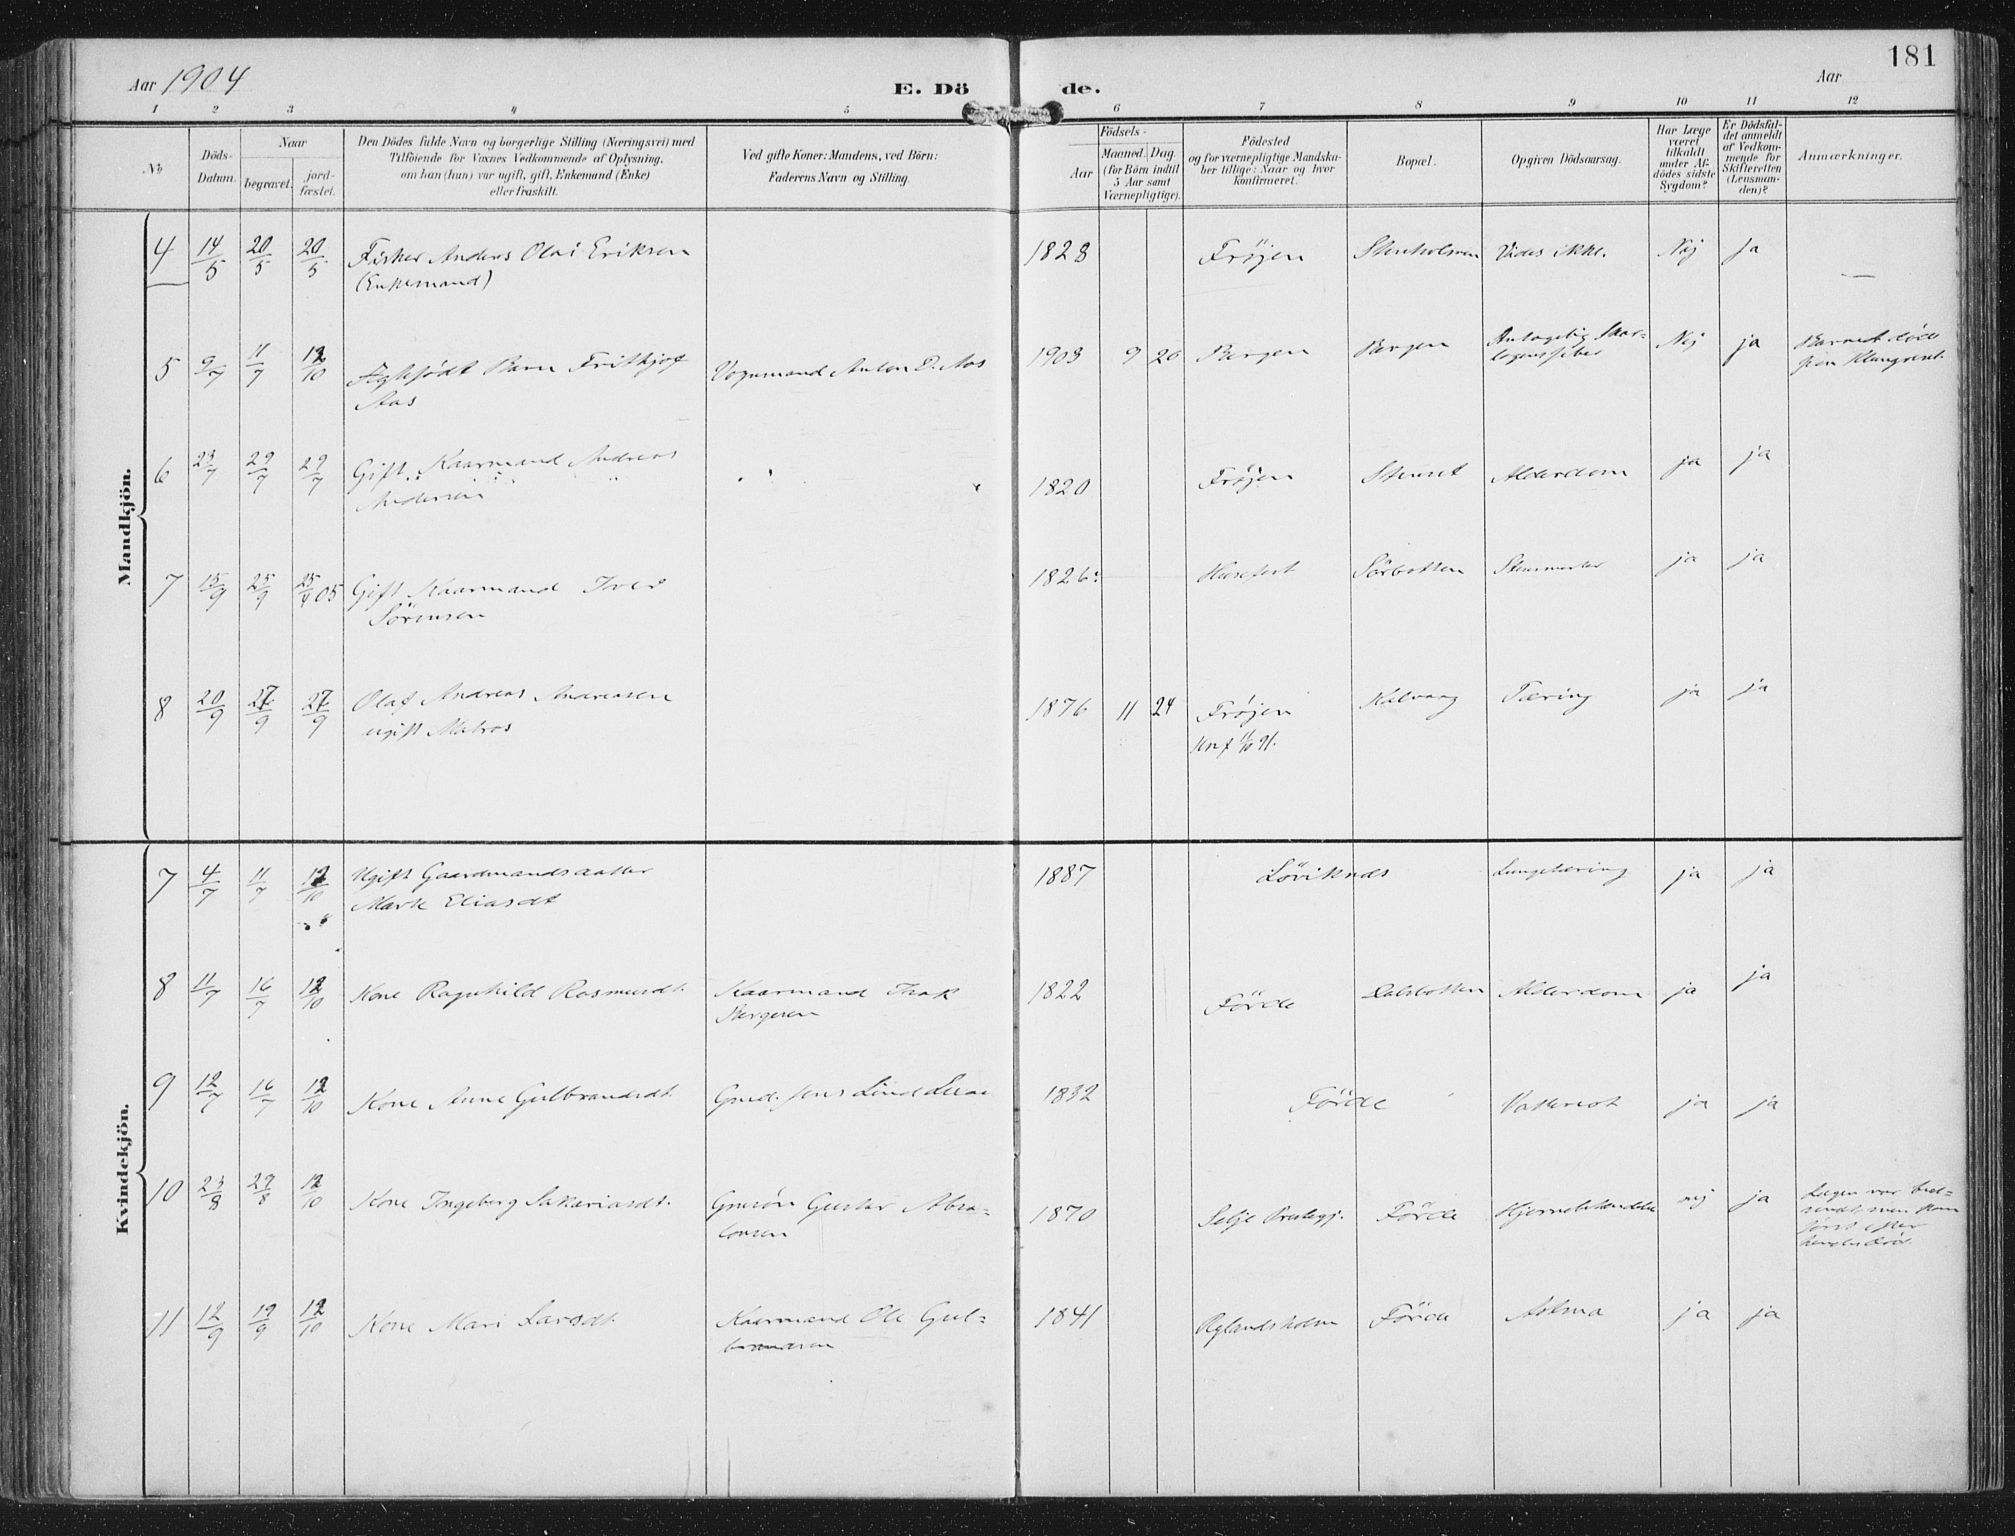 181
Aar 1904
E. Dö
de.
Aar
1 2 3 4 5 6 7 8 9 10 11 12
No
Döds-
Datum.
Naar
begravet.
jord-
fæstet.
Den Dödes fulde Navn og borgerlige Stilling (Næringsvei) med
Tilföiende for Voxnes Vedkommende af Oplysning,
om han (hun) var ugift, gift, Enkemand (Enke)
eller fraskilt.
Ved gifte Koner: Mandens, ved Börn:
Faderens Navn og Stilling.
Födsels-
Aar
Maaned. Dag.
(for Börn indtil
5 Aar samt
Værnepligtige).
Födested
og for værnepligtige Mandska-
ber tillige: Naar og hvor
konfirmeret.
Bopæl.
Opgiven Dödsaarsag.
Har Læge
været
tilkaldt
under Af-
dödes sidste
Sygdom?
Er Dödsfal-
det anmeldt
af Vedkom-
mende for
Skifteretten
(Lensman-
den)?
Anmærkninger.
Mandkjön.
4 14/5 20/5 20/5 Fisker Anders Olai Eriksen 1828 Frøjen Stenholmen Vides ikke. Nej Ja
(Enkemand) —
5 9/7 11/7 12/10 Ægtefødt Barn Frithjof Vognmand Anton D. Aas 1903 9 20 Bergen Bergen Antagelig Skar-
lagensfeber Nej ja Barnet døde
Aas
6 23/7 29/7 29/7 Gift Kaarmand Andreas 1820 Frøjen Stenset Alderdom ja ja
Andersen
7 15/9 25/9 25/4 05 Gift Kaarmand Iver 1826 Husefest Sørbotten ja ja
Sörensen
8 20/9 27/9 27/9 Olaf Andreas Andreasen 1876 11 24 Frøjen Kalvaag Tæring ja ja
ugift Matros Knf 11/10 91.
Kvindekjön.
7 4/7 11/7 12/10 Ugift Gaardmandsdatter 1887 Løviknes Lungetæring ja ja
Marte Eliasdt
8 11/7 16/7 12/10 Kone Ragnhild Rasmusdt. Kaarmand Isak 1822 Förde Dalsbotten Alderdom ja ja
9 12/7 16/7 12/10 Kone Anne Gulbrandsdt. Gmd. Jens 1832 Förde Vattersot ja ja
10 23/8 29/8 12/10 Kone Ingeborg Sakariasdt. Gmsön Gustav Absa- 1870 Selje Prestegj. Förde nej ja Lægen var bud-
lonsen sendt, men kom
först efter
hendes Död.
11 12/9 19/9 12/10 Kone Mari Larsdt. Kaarmand Ole Gul- 1841 Rylandsholm Förde Astma ja ja
brandsen